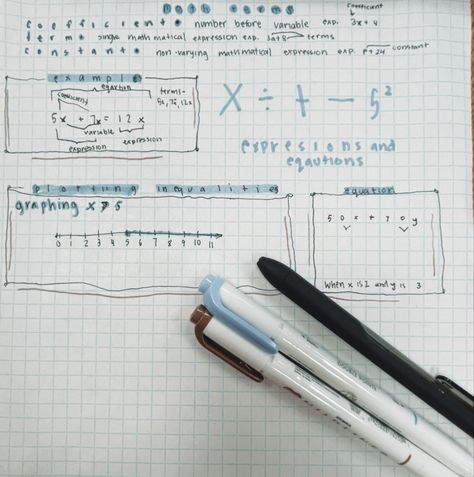 math terms
coefficient • number before variable exp. 3x+4
coefficient
term • single math matical expression exp. 2a+8 terms
constant • non-varying mathmatical expression exp. p+24 constant
example
equation
coefficient
terms-
5x, 7x, 12x
5x + 7x = 12x
variable
expression
expression
X ÷ + − 5²
expresions and
eqautions
plotting inequalities
graphing x > 5
0 1 2 3 4 5 6 7 8 9 10 11
equation
50x + 70y
When x is 2 and y is 3